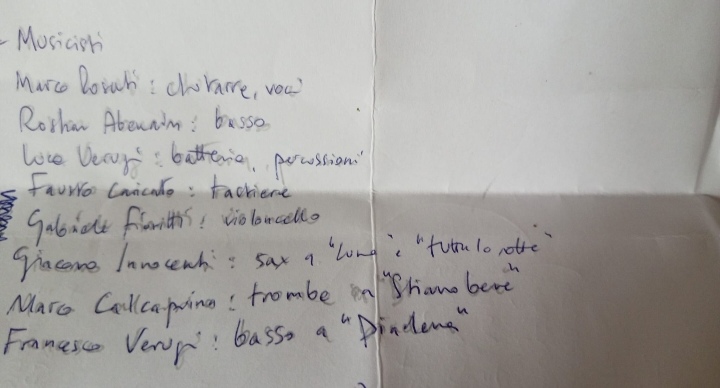 - Musicisti
Marco Rovati : chitarre, voci
Roshan Abenaim : basso
Luca Verugi : batteria, percussioni
Fausto : tastiere
Gabriele Fioritti : violoncello
Giacomo Innocenti : sax a "Luna" e "tutta la notte"
Marco : trombe in "Stiamo bene"
Francesco Verugi : basso a "Diadema"